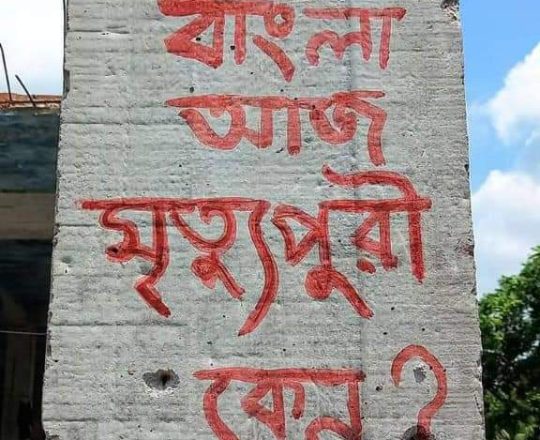 বাংলা
আজ
মৃত্যুপুরী
কেন?